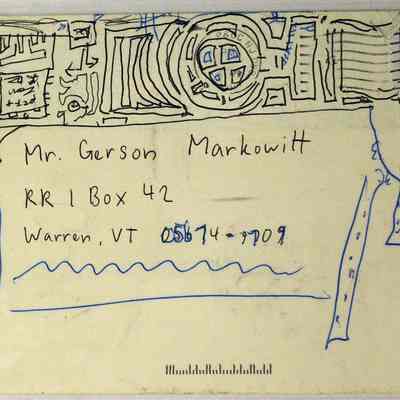 Mr. Gerson Markowitt
RR 1 Box 42
Warren, VT 05674-9709